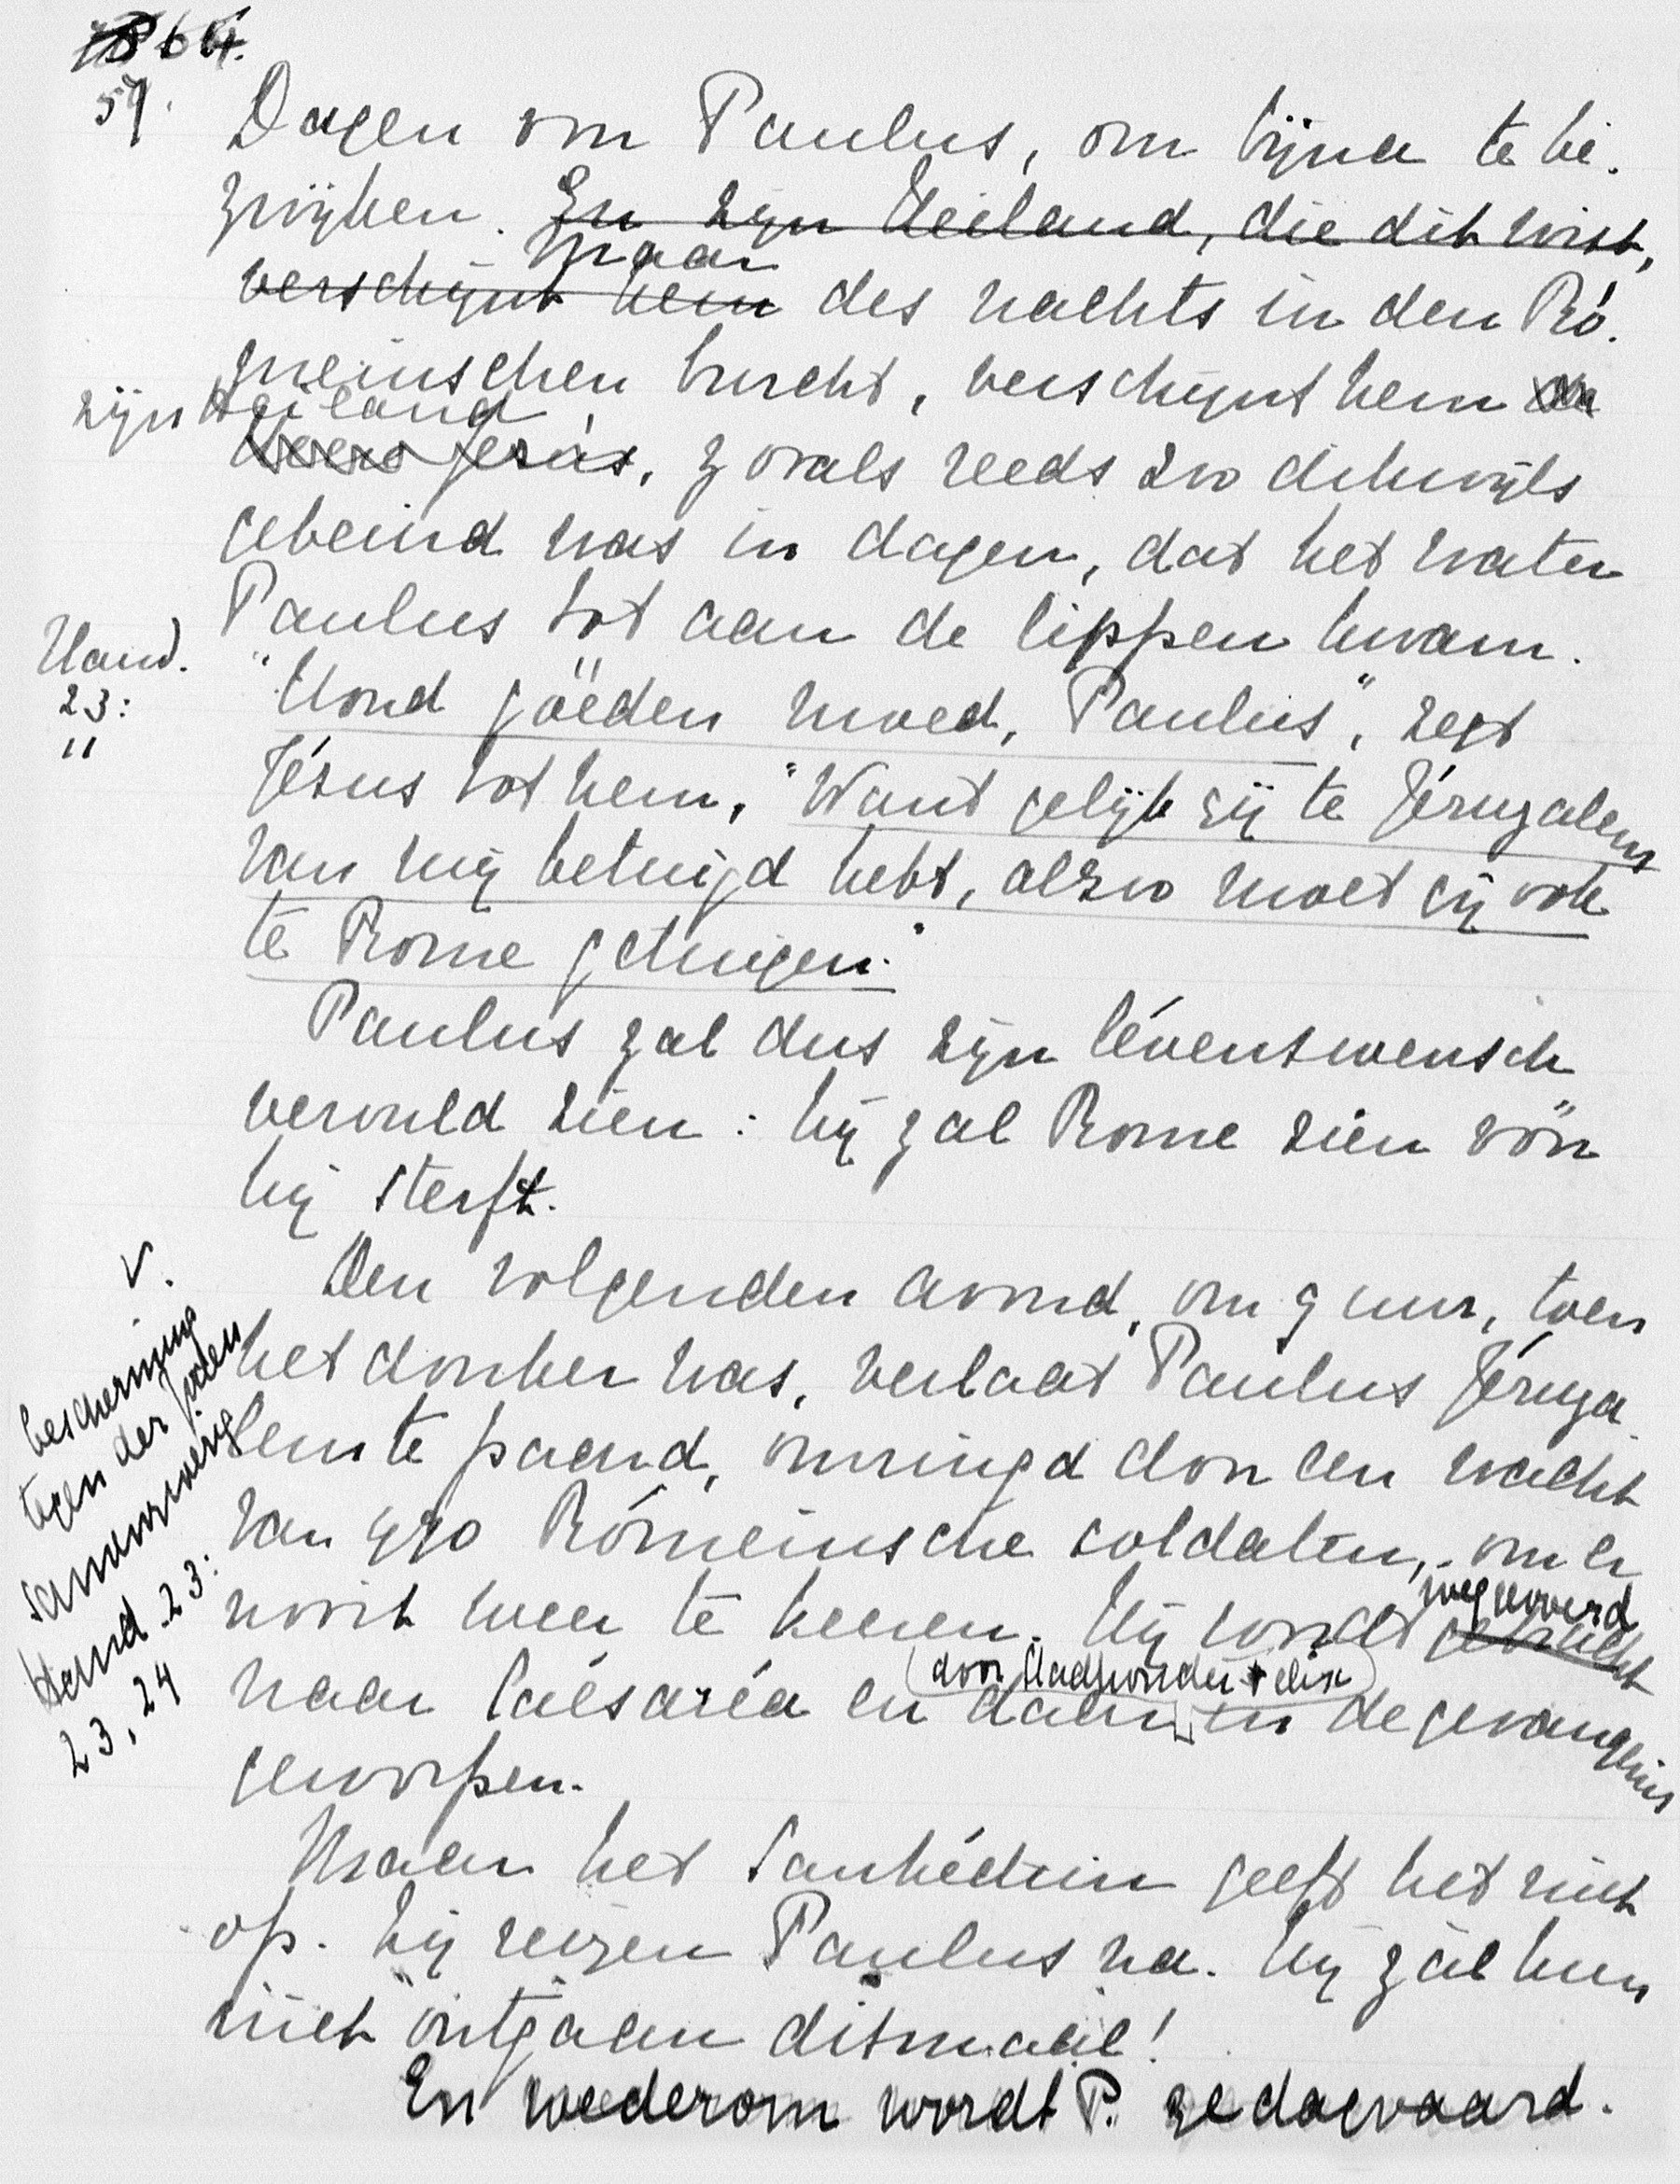 1864.
59.
Dagen om Paulus, om bijna te be-
zwijken. En zijn Heiland, die dit wist,
Maar
verschijnt hem des nachts in den Ró-
meinschen burcht, verschijnt hem de
zijn Heiland
Heere Jezus, zooals reeds zoo dikwijls
gebeurd was in dagen, dat het water
Paulus tot aan de lippen kwam.
Hand.
23:
11
"Houd goeden moed, Paulus", zegt
Jézus tot hem, "Want gelijk gij te Jéruzalem
van mij betuigd hebt, alzoo moet gij ook
te Rome getuigen."
Paulus zal dus zijn lévenswensch
vervuld zien: hij zal Rome zien vóór
hij sterft.
Den volgenden avond, om 9 uur, toen
het donker was, verlaat Paulus Jéruza-
lem te paard, omringd door een wacht
van 470 Rómeinsche soldaten, om er
nooit weer te keeren. Hij wordt gebracht
weggevoerd
naar Caésaréa en daar in de gevangenis
(door stadhouder Felix)
geworpen.
V.
bescherming
tegen der Joden
samenzwering
Hand. 23:
23, 24
Maar het Sanhédrin geeft het niet
op. Zij reizen Paulus na. Hij zál hun
niet ontgaan ditmaal!
En wederom wordt P. gedagvaard.